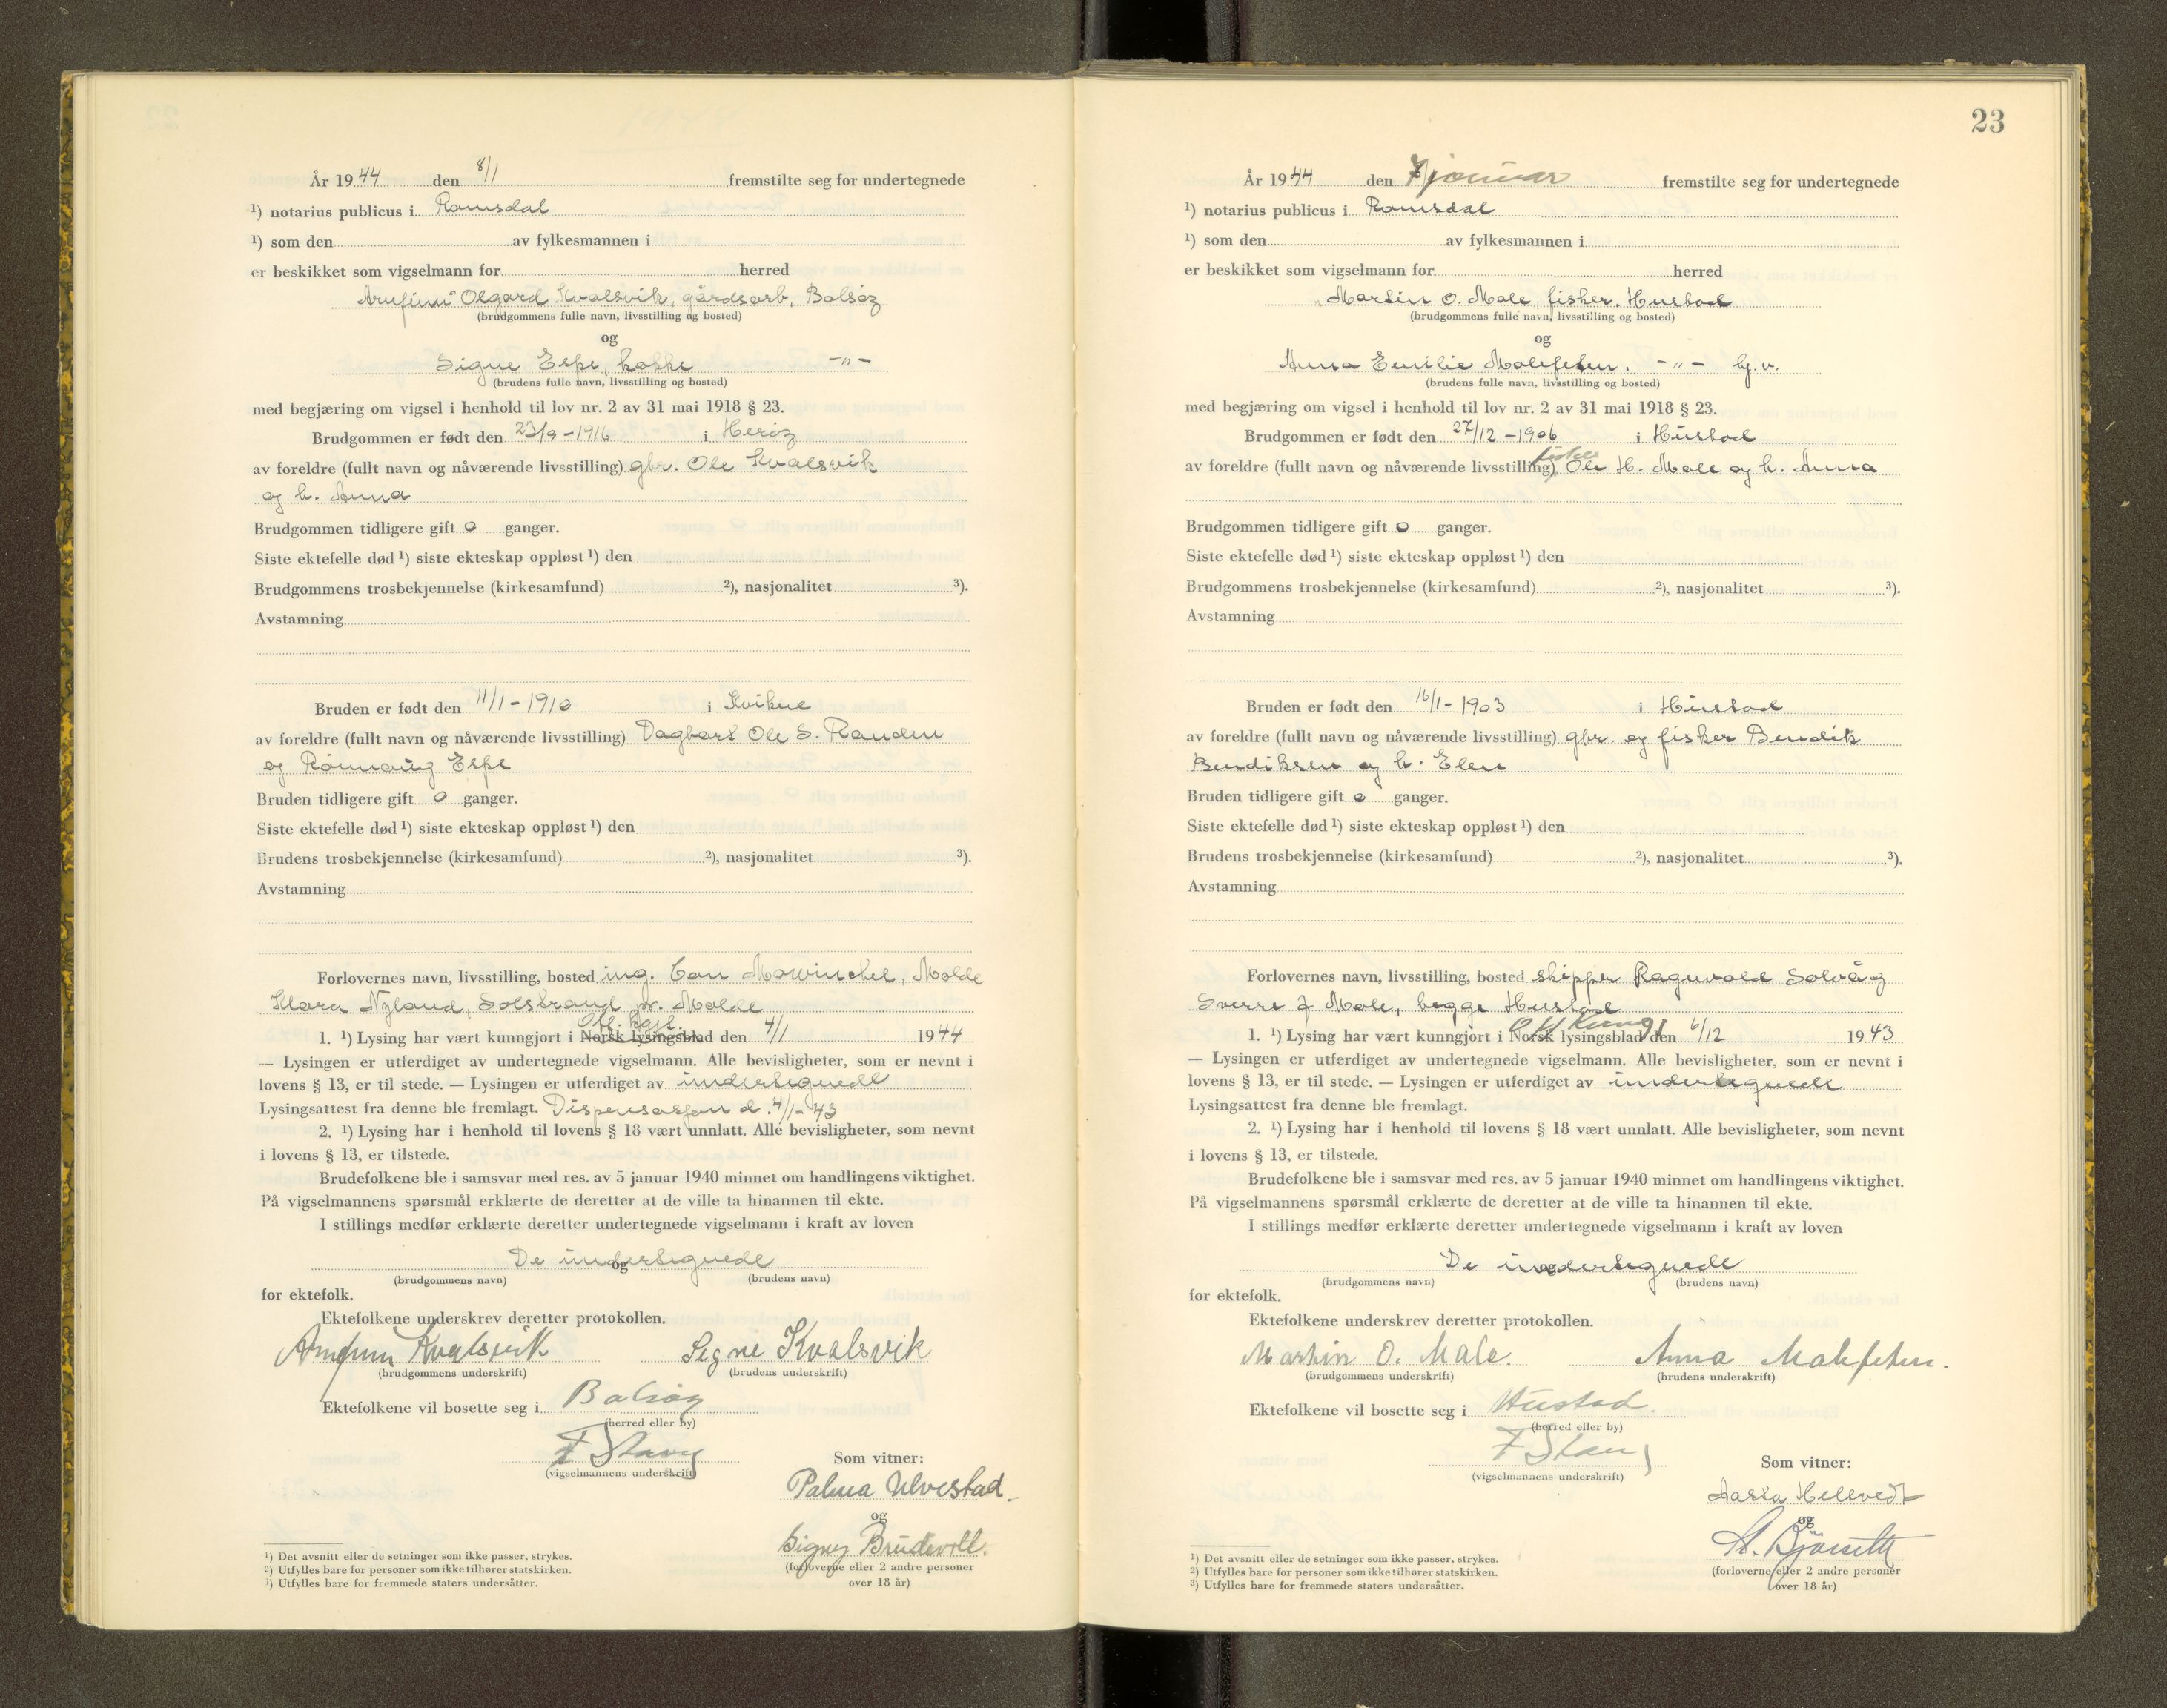 År 1944 den 8/1 fremstilte seg for undertegnede
¹) notarius publicus i Romsdal
¹) som den av fylkesmannen i
er beskikket som vigselmann for herred
Arnfinn Olgard Kvalsvik, gårdsarb, Bolsøy
(brudgommens fulle navn, livsstilling og bosted)
og
Signe Espe, kokke -"-
(brudens fulle navn, livsstilling og bosted)
med begjæring om vigsel i henhold til lov nr. 2 av 31 mai 1918 § 23.
Brudgommen er født den 23/9-1916 i Herøy
av foreldre (fullt navn og nåværende livsstilling) gbr. Ole Kvalsvik
og h. Anna
Brudgommen tidligere gift 0 ganger.
Siste ektefelle død ¹) siste ekteskap oppløst ¹) den
Brudgommens trosbekjennelse (kirkesamfund) ²), nasjonalitet ³).
Avstamning
Bruden er født den 11/1-1910 i Kvikne
av foreldre (fullt navn og nåværende livsstilling) Ole S. Randen
og Rønnaug Espe
Bruden tidligere gift 0 ganger.
Siste ektefelle død ¹) siste ekteskap oppløst ¹) den
Brudens trosbekjennelse (kirkesamfund) ²), nasjonalitet ³).
Avstamning
Forlovernes navn, livsstilling, bosted ing. Mowinckel, Molde
Klara Nyland, Solstrand pr. Molde
Off. kgjl.
1. ¹) Lysing har vært kunngjort i Norsk lysingsblad den 4/1 1944
— Lysingen er utferdiget av undertegnede vigselmann. Alle bevisligheter, som er nevnt i
lovens § 13, er til stede. — Lysingen er utferdiget av undertegnede
Lysingsattest fra denne ble fremlagt. Dispensasjon d. 4/1-43
2. ¹) Lysing har i henhold til lovens § 18 vært unnlatt. Alle bevisligheter, som nevnt
i lovens § 13, er tilstede.
Brudefolkene ble i samsvar med res. av 5 januar 1940 minnet om handlingens viktighet.
På vigselmannens spørsmål erklærte de deretter at de ville ta hinannen til ekte.
I stillings medfør erklærte deretter undertegnede vigselmann i kraft av loven
De undertegnede
og
(brudgommens navn) (brudens navn)
for ektefolk.
Ektefolkene underskrev deretter protokollen.
Arnfinn Kvalsvik Signe Kvalsvik
(brudgommens underskrift) (brudens underskrift)
Ektefolkene vil bosette seg i Bolsøy
(herred eller by)
F Stang
(vigselmannens underskrift)
Som vitner:
Palma Ulvestad.
og
Signy Brudevoll.
(forloverne eller 2 andre personer
over 18 år)
¹) Det avsnitt eller de setninger som ikke passer, strykes.
²) Utfylles bare for personer som ikke tilhører statskirken.
³) Utfylles bare for fremmede staters undersåtter.
23
År 1944 den januar fremstilte seg for undertegnede
¹) notarius publicus i Romsdal
¹) som den av fylkesmannen i
er beskikket som vigselmann for herred
Martin O. Male, fisker, Hustad
(brudgommens fulle navn, livsstilling og bosted)
og
Anna Emilie Malefeten, -"- hj. v.
(brudens fulle navn, livsstilling og bosted)
med begjæring om vigsel i henhold til lov nr. 2 av 31 mai 1918 § 23.
Brudgommen er født den 27/12-1906 i Hustad
fisker
av foreldre (fullt navn og nåværende livsstilling) Ole H. Male og h. Anna
Brudgommen tidligere gift 0 ganger.
Siste ektefelle død ¹) siste ekteskap oppløst ¹) den
Brudgommens trosbekjennelse (kirkesamfund) ²), nasjonalitet ³).
Avstamning
Bruden er født den 16/1-1903 i Hustad
av foreldre (fullt navn og nåværende livsstilling) gbr. og fisker Bendik
Bendiksen og h. Elen
Bruden tidligere gift 0 ganger.
Siste ektefelle død ¹) siste ekteskap oppløst ¹) den
Brudens trosbekjennelse (kirkesamfund) ²), nasjonalitet ³).
Avstamning
Forlovernes navn, livsstilling, bosted skipper Ragnvald Solvåg
Sverre J Male, begge Hustad
Off Kungj
1. ¹) Lysing har vært kunngjort i Norsk lysingsblad den 6/12 1943
— Lysingen er utferdiget av undertegnede vigselmann. Alle bevisligheter, som er nevnt i
lovens § 13, er til stede. — Lysingen er utferdiget av undertegnede
Lysingsattest fra denne ble fremlagt.
2. ¹) Lysing har i henhold til lovens § 18 vært unnlatt. Alle bevisligheter, som nevnt
i lovens § 13, er tilstede.
Brudefolkene ble i samsvar med res. av 5 januar 1940 minnet om handlingens viktighet.
På vigselmannens spørsmål erklærte de deretter at de ville ta hinannen til ekte.
I stillings medfør erklærte deretter undertegnede vigselmann i kraft av loven
De undertegnede
og
(brudgommens navn) (brudens navn)
for ektefolk.
Ektefolkene underskrev deretter protokollen.
Martin O. Male. Anna Malefeten.
(brudgommens underskrift) (brudens underskrift)
Ektefolkene vil bosette seg i Hustad.
(herred eller by)
F Stang
(vigselmannens underskrift)
Som vitner:
Aasta Hellevedt
og
Bjørseth
(forloverne eller 2 andre personer
over 18 år)
¹) Det avsnitt eller de setninger som ikke passer, strykes.
²) Utfylles bare for personer som ikke tilhører statskirken.
³) Utfylles bare for fremmede staters undersåtter.